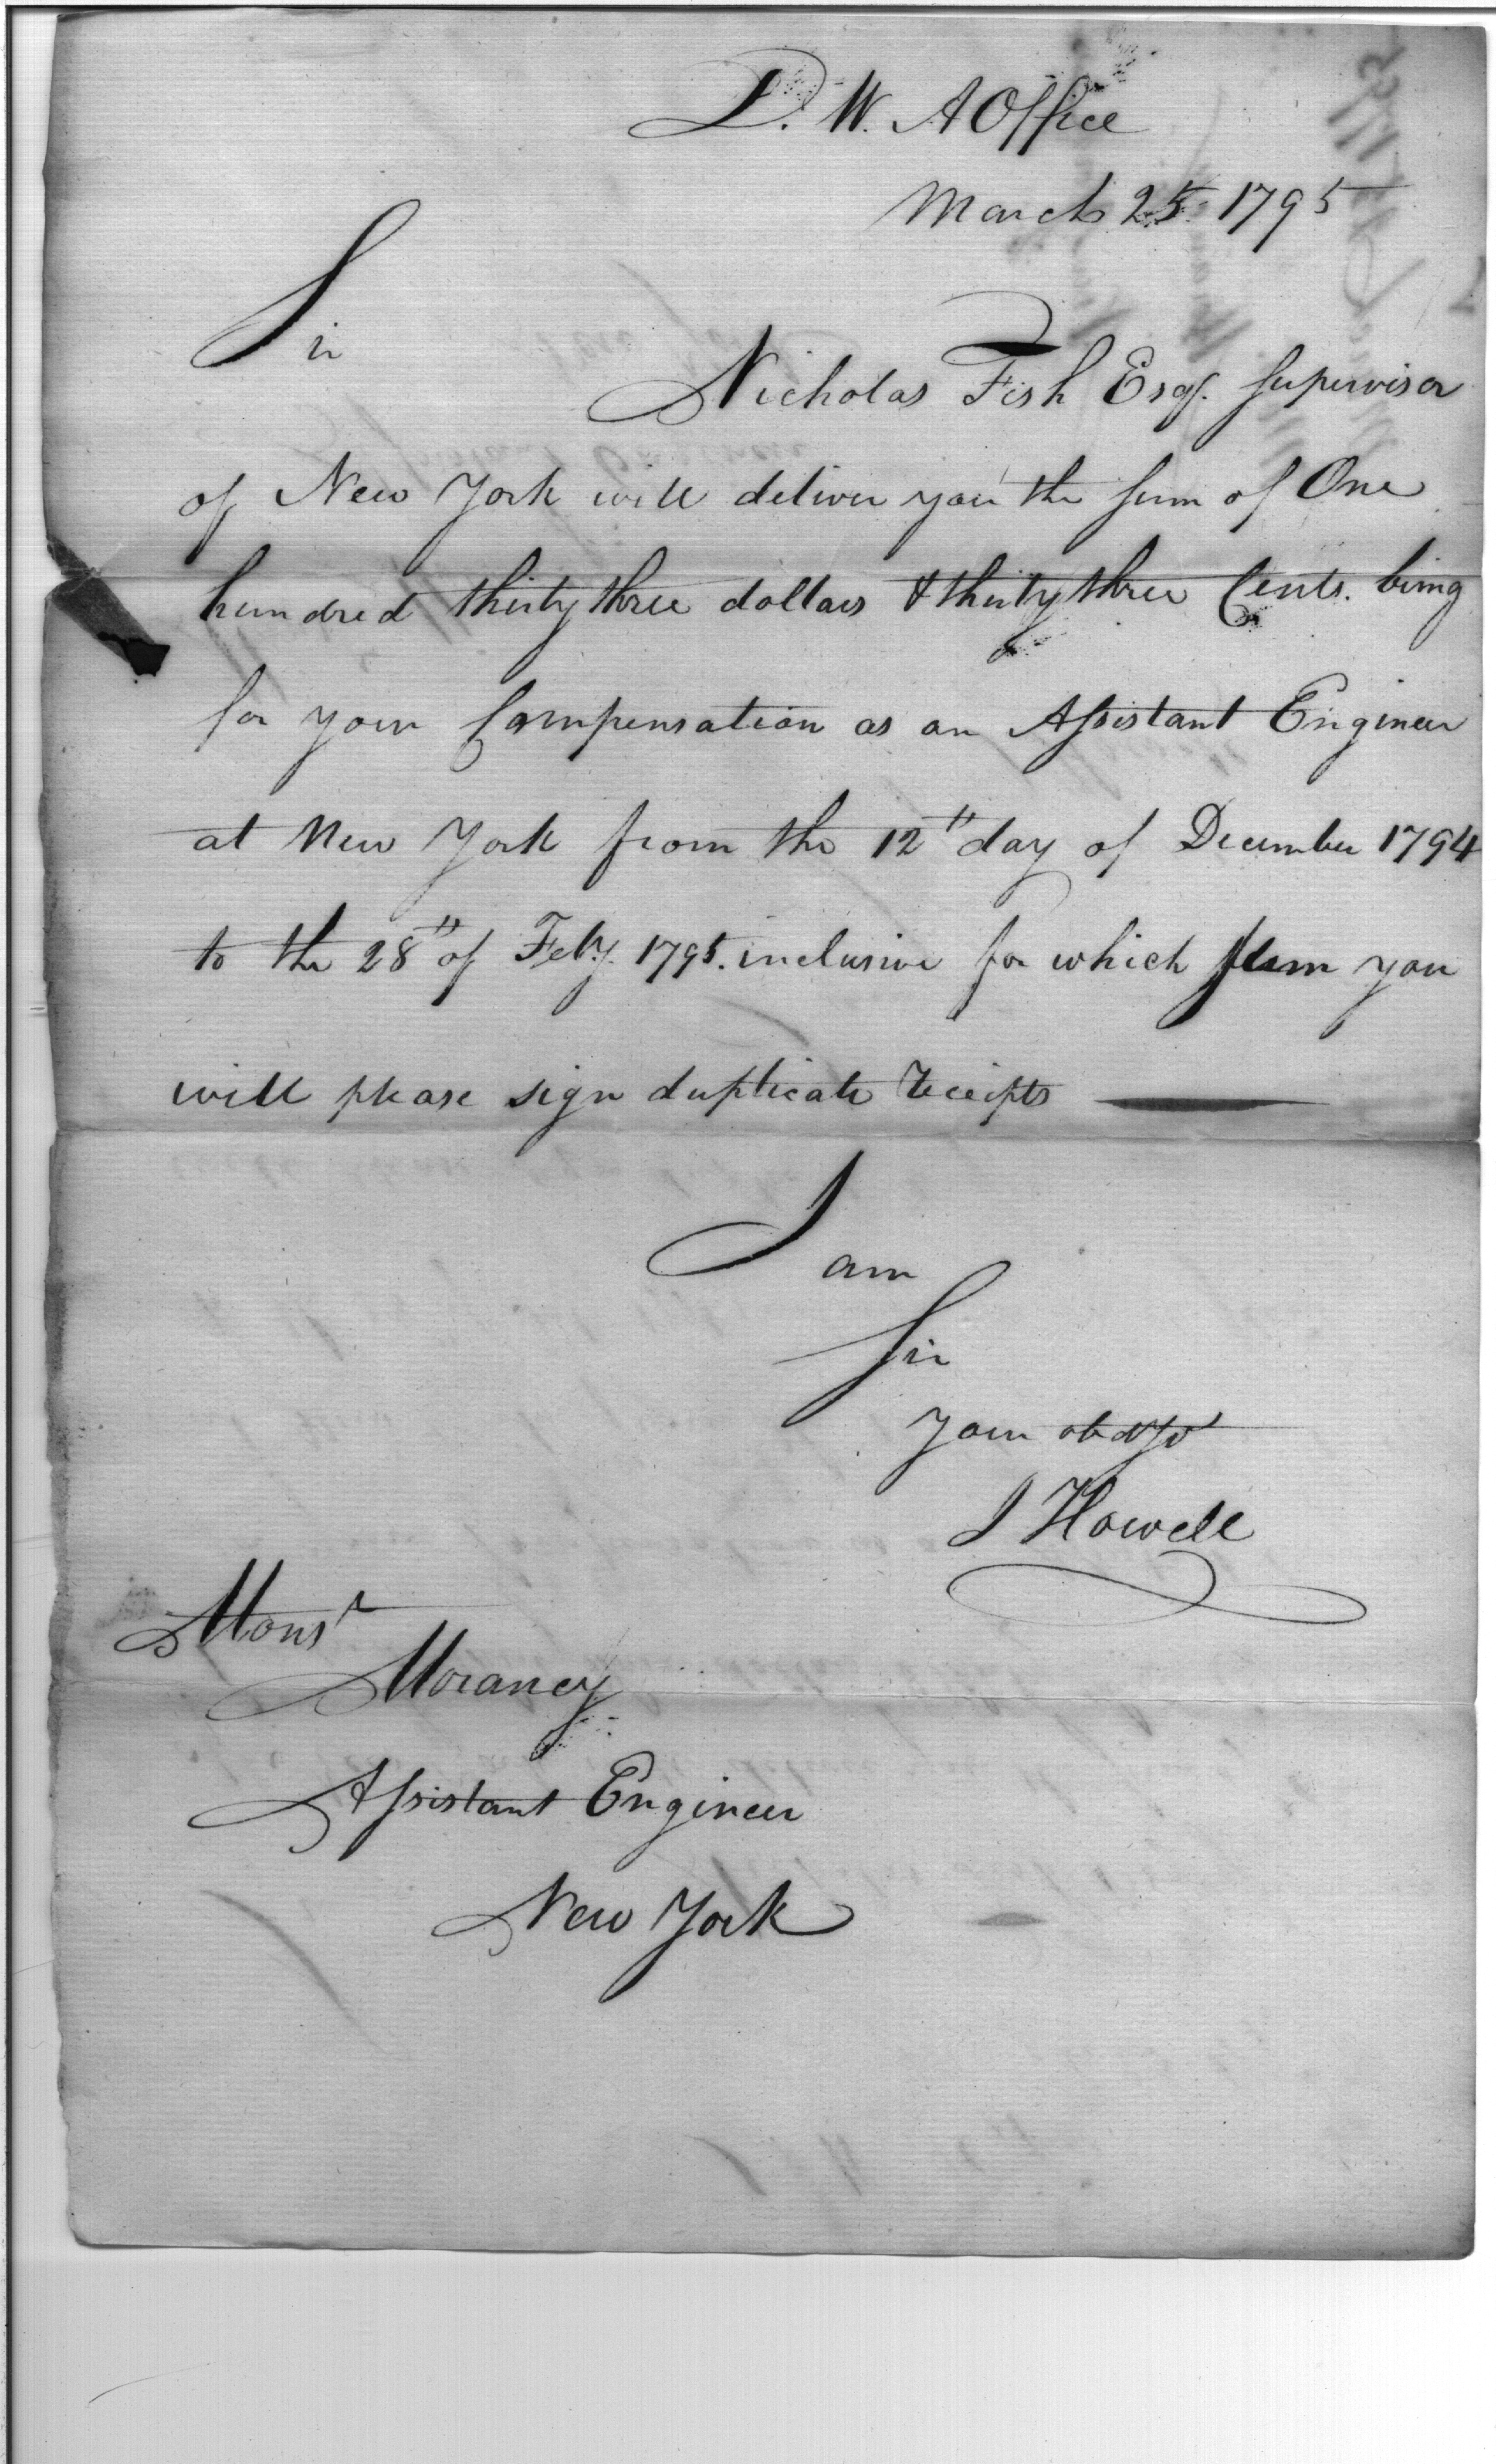 D. W. A Office
March 25 1795
Sir
Nicholas Fish Esqr. Supervisor
of New York will deliver you the sum of One
hundred thirty three dollars & thirty three Cents. being
for your Compensation as an Assistant Engineer
at New York from the 12th day of December 1794
to the 28th of Feby. 1795. inclusive for which sum you
will please sign duplicate receipts
I am
Sir
Your
J Howell
Monsr
Morancy
Assistant Engineer
New York